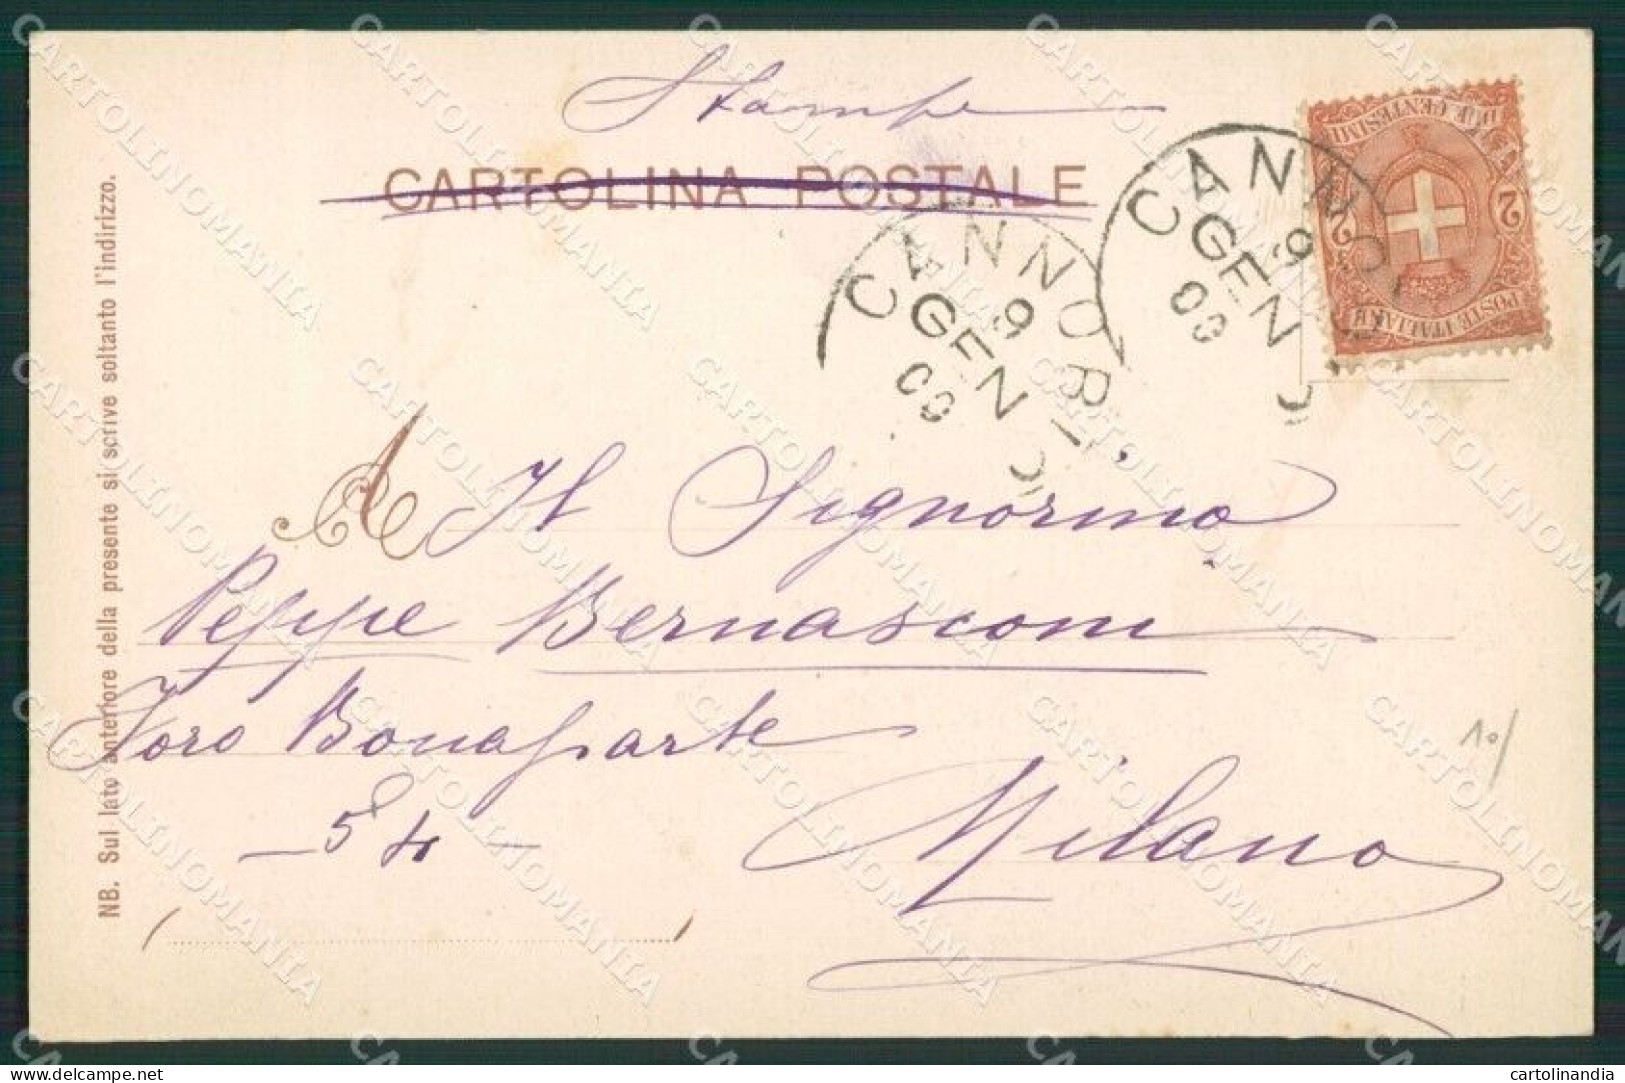 Stampe
CARTOLINA POSTALE
DUE CENTESIMI
2 2
POSTE ITALIANE
CANNOBI
9
GEN
00
CANNOBIO
9
GEN
00
A Il Signorino
Peppe Bernasconi
Foro Bonaparte
54
Milano
NB. Sul lato anteriore della presente si scrive soltanto l'indirizzo.
10/
CARTOLINOMANIA
cartolinandia